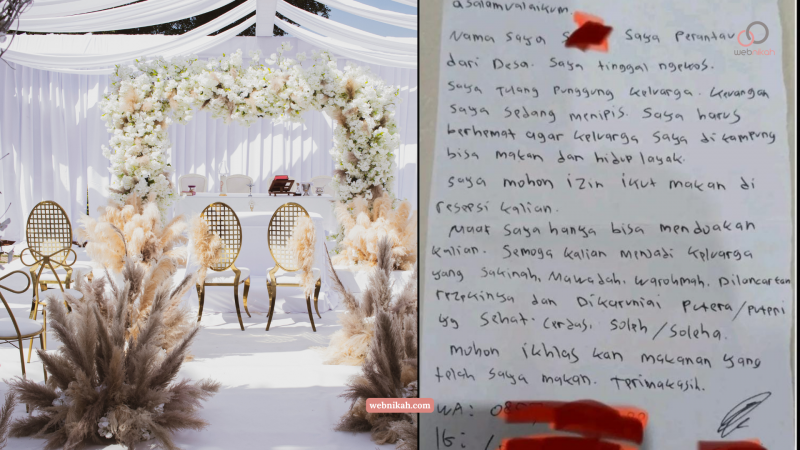 asalamualaikum.
Nama saya S saya Perantau
dari Desa. Saya tinggal ngekos.
Saya Tulang Punggung keluarga. keuangan
saya sedang menipis. Saya harus
berhemat agar keluarga saya di kampung
bisa makan dan hidup layak.
saya mohon izin ikut makan di
resepsi kalian.
Maaf saya hanya bisa mendoakan
kalian. Semoga kalian menjadi keluarga
yang sakinah, Mawadah, warohmah, Dilancarkan
rezekinya dan Dikaruniai Putera/puteri
yg Sehat. Cerdas. Soleh/Soleha.
mohon ikhlas kan makanan yang
telah saya makan. Terimakasih.
WA:
IG:
webnikah
webnikah.com